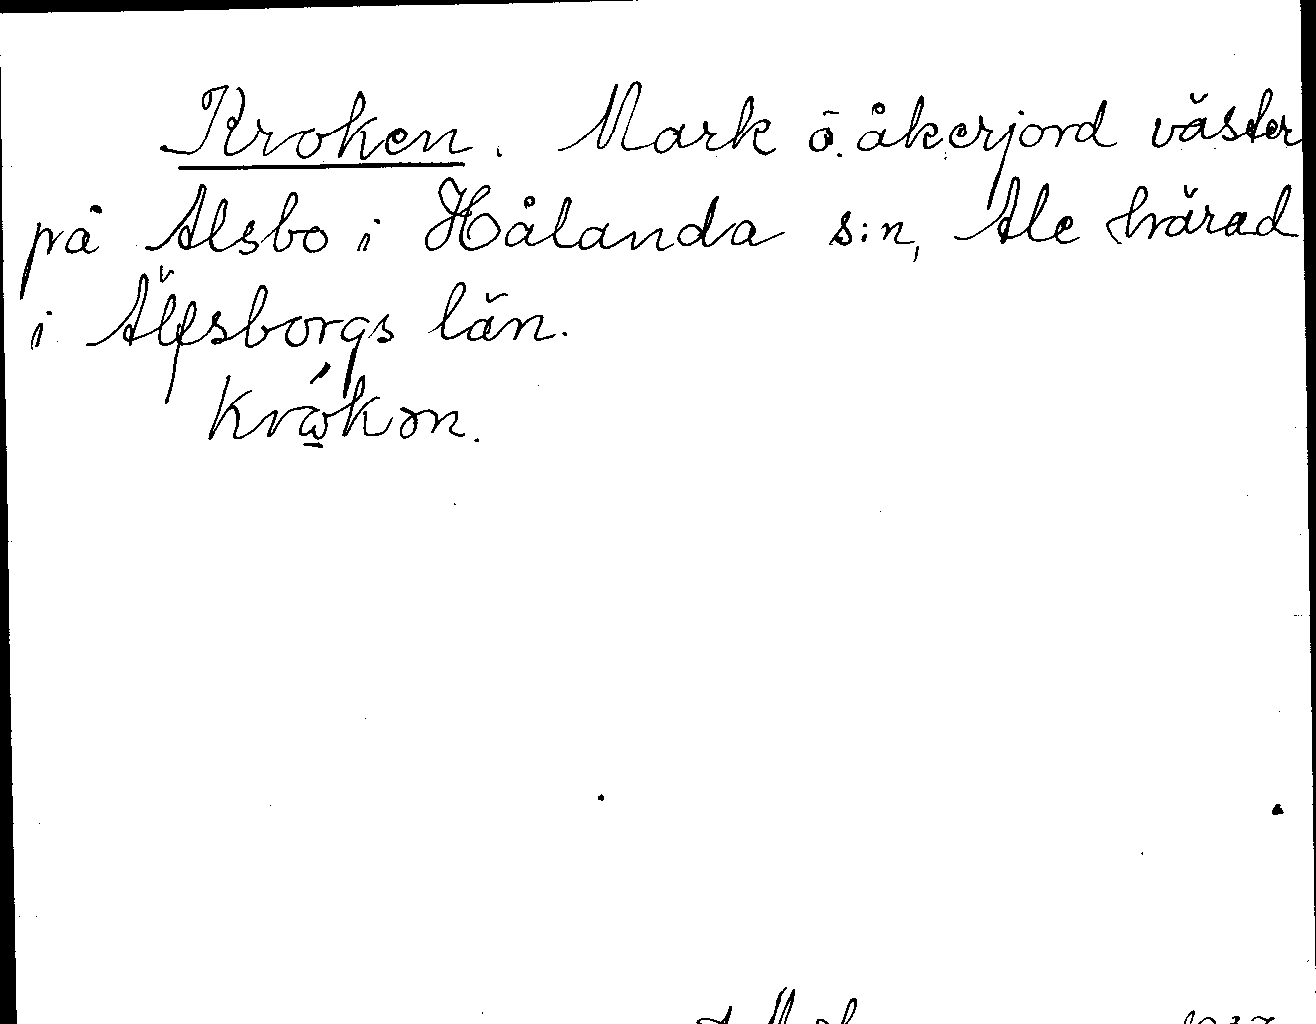 Kroken. Mark o. åkerjord väster
på Alsbo i Hålanda s:n, Ale härad
i Älfsborgs län.
Krώ̲kən.